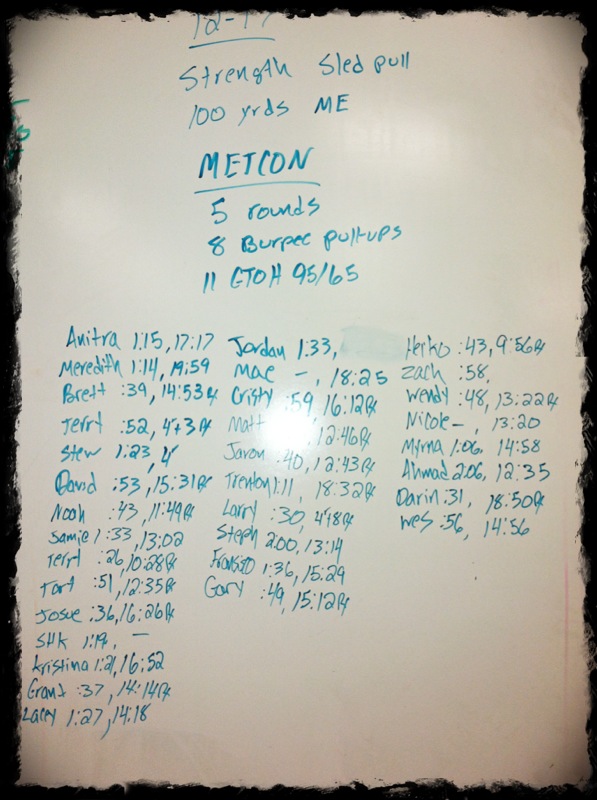 12-17
Strength Sled pull
100 yrds ME
METCON
5 rounds
8 Burpee pull-ups
11 GTOH 95/65
Anitra 1:15, 17:17
Meredith 1:14, 19:59
Brett :39, 14:53 Rx
Terri :52, 4+3 Rx
Stew 1:23, 4
David :53, 15:31 Rx
Noah :43, 11:49 Rx
Jamie 1:33, 13:02
Terry :26, 10:28 Rx
Tart :51, 12:35 Rx
Josue :36, 16:26 Rx
1:19, —
Kristina 1:21, 16:52
Grant :37, 14:14 Rx
Lacey 1:27, 14:18
Jordan 1:33,
Mae —, 18:25
Cristy :59, 16:12 Rx
Matt 12:46 Rx
Jaron :40, 12:43 Rx
Trenton 1:11, 18:32 Rx
Larry :30,
Steph 2:00, 13:14
1:36, 15:29
Gary :49, 15:12 Rx
Heiko :43, 9:56 Rx
Zach :58,
Wendy :48, 13:22 Rx
Nicole —, 13:20
Myrna 1:06, 14:58
Ahmad 2:06, 12:35
Darin :31, 18:50 Rx
Wes :56, 14:56